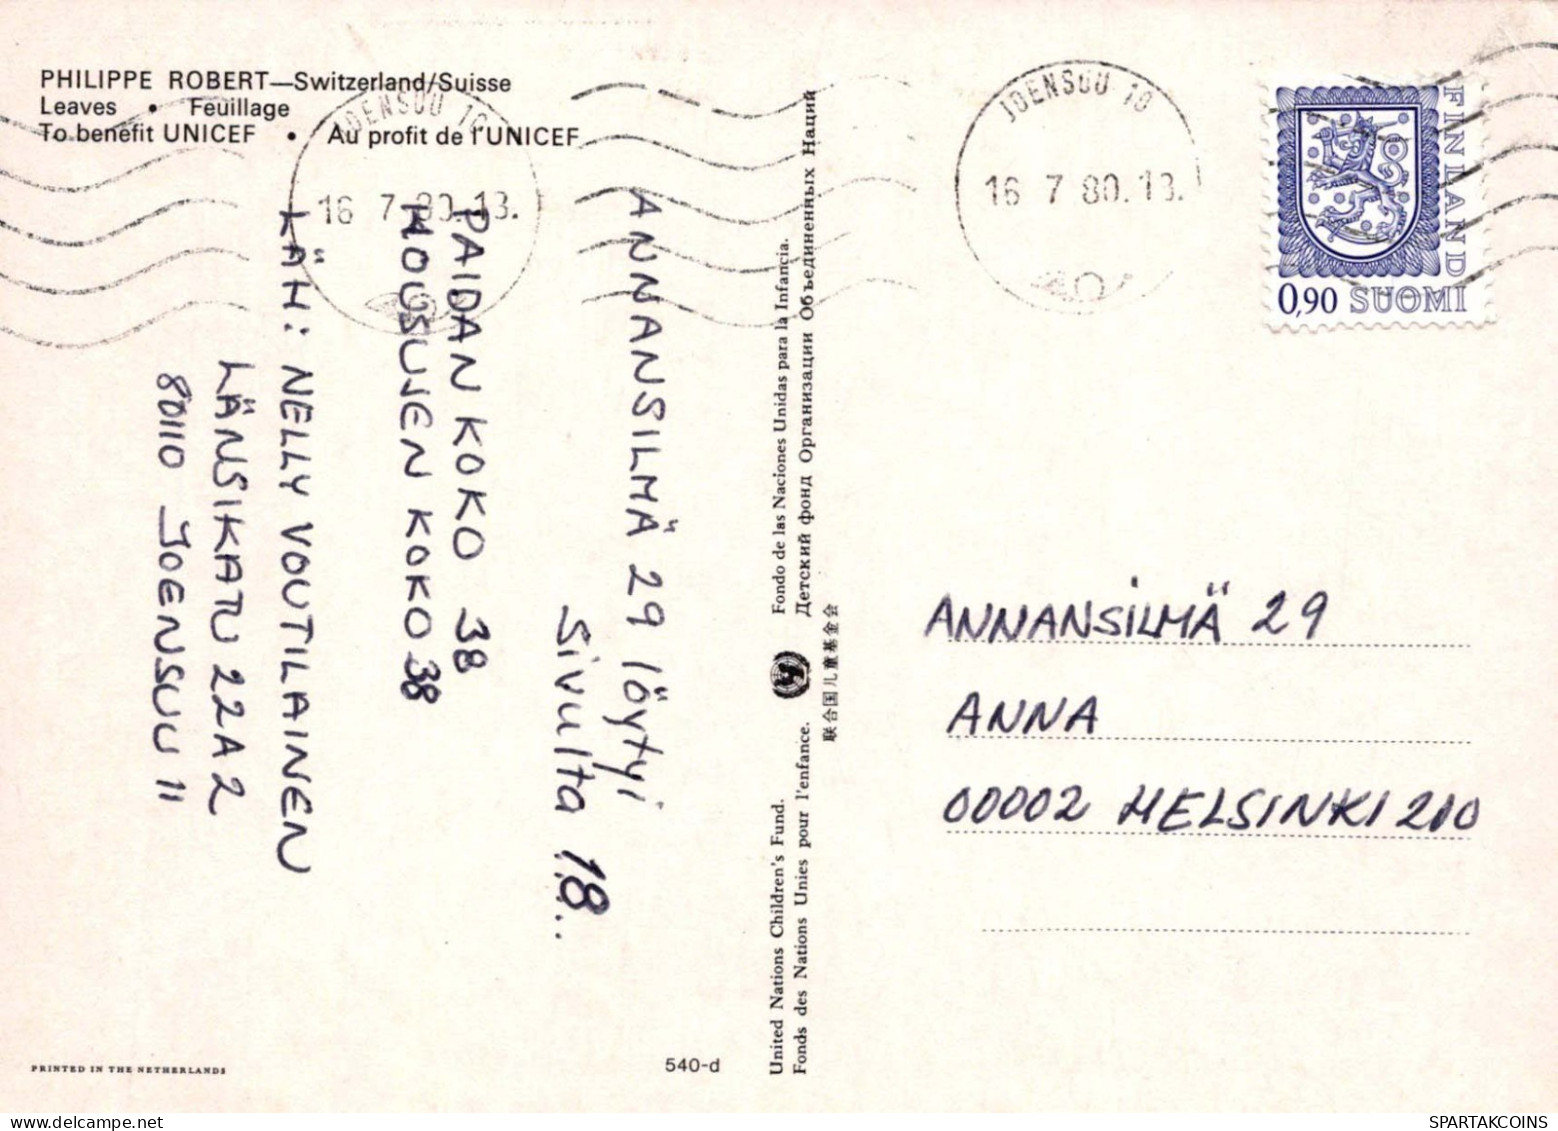 PHILIPPE ROBERT—Switzerland/Suisse
Leaves • Feuillage
To benefit UNICEF • Au profit de l'UNICEF
JOENSUU 10
16 7 80.13.
JOENSUU 10
16 7 80.13.
FINLAND
0,90 SUOMI
ANNANSILMÄ 29 löytyi
sivulta 18..
PAIDAN KOKO 38
HOUSUJEN KOKO 38
LÄH: NELLY VOUTILAINEN
LÄNSIKATU 22 A 2
80110 JOENSUU 11
United Nations Children's Fund. Fondo de las Naciones Unidas para la Infancia.
Fonds des Nations Unies pour l'enfance. Детский фонд Организации Объединенных Наций
联合国儿童基金会
ANNANSiLMÄ 29
ANNA
00002 HELSINKI 210
PRINTED IN THE NETHERLANDS
540-d
SPARTAKCOINS